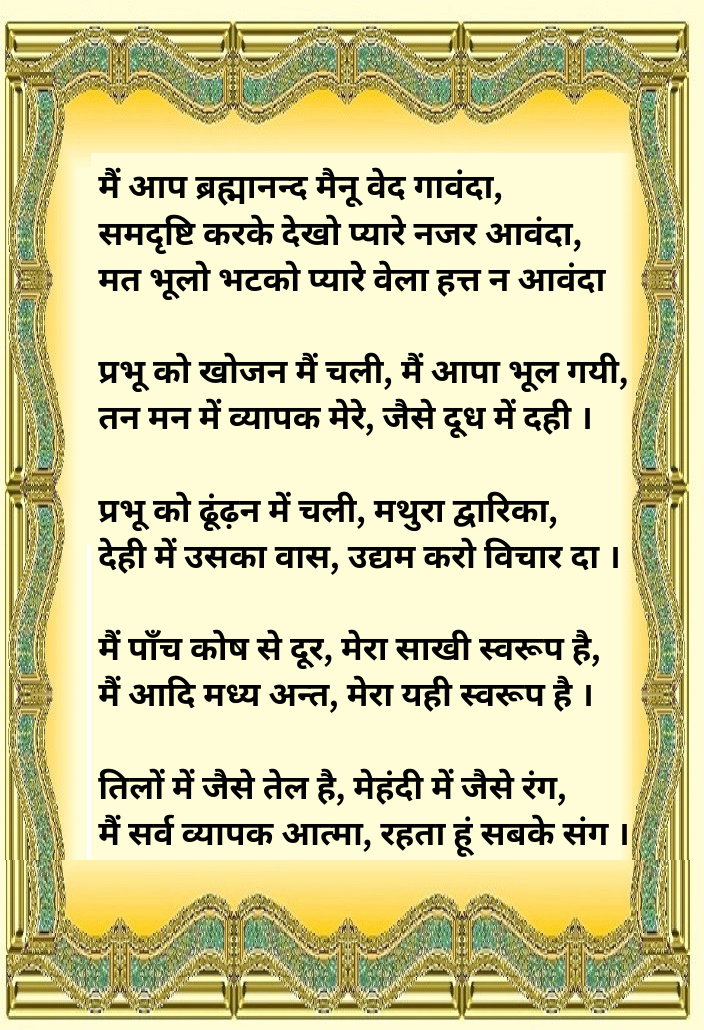 मैं आप ब्रह्मानन्द मैनू वेद गावंदा,
समदृष्टि करके देखो प्यारे नजर आवंदा,
मत भूलो भटको प्यारे वेला हत्त न आवंदा
प्रभू को खोजन मैं चली, मैं आपा भूल गयी,
तन मन में व्यापक मेरे, जैसे दूध में दही ।
प्रभू को ढूंढ़न में चली, मथुरा द्वारिका,
देही में उसका वास, उद्यम करो विचार दा ।
मैं पाँच कोष से दूर, मेरा साखी स्वरूप है,
मैं आदि मध्य अन्त, मेरा यही स्वरूप है ।
तिलों में जैसे तेल है, मेहंदी में जैसे रंग,
मैं सर्व व्यापक आत्मा, रहता हूं सबके संग ।